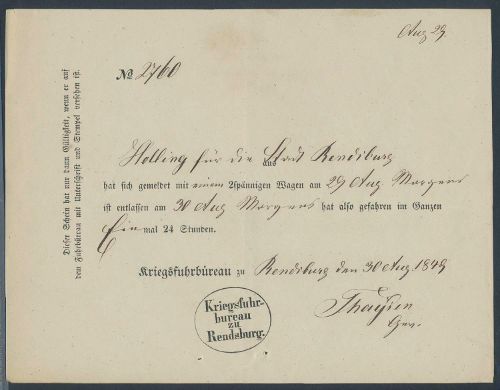 Aug 29.
№ 2760
Dieser Schein hat nur dann Gültigkeit, wenn er auf
dem Fuhrbüreau mit Unterschrift und Stempel versehen ist.
Holling für die Stadt Rendsburg
aus
hat sich gemeldet mit einem 2spännigen Wagen am 29 Aug Morgens
ist entlassen am 30 Aug Morgens hat also gefahren im Ganzen
Ein mal 24 Stunden.
Kriegsfuhrbüreau zu Rendsburg den 30 Aug. 1849
Kriegsfuhr-
bureau
zu
Rendsburg.
Thaysen